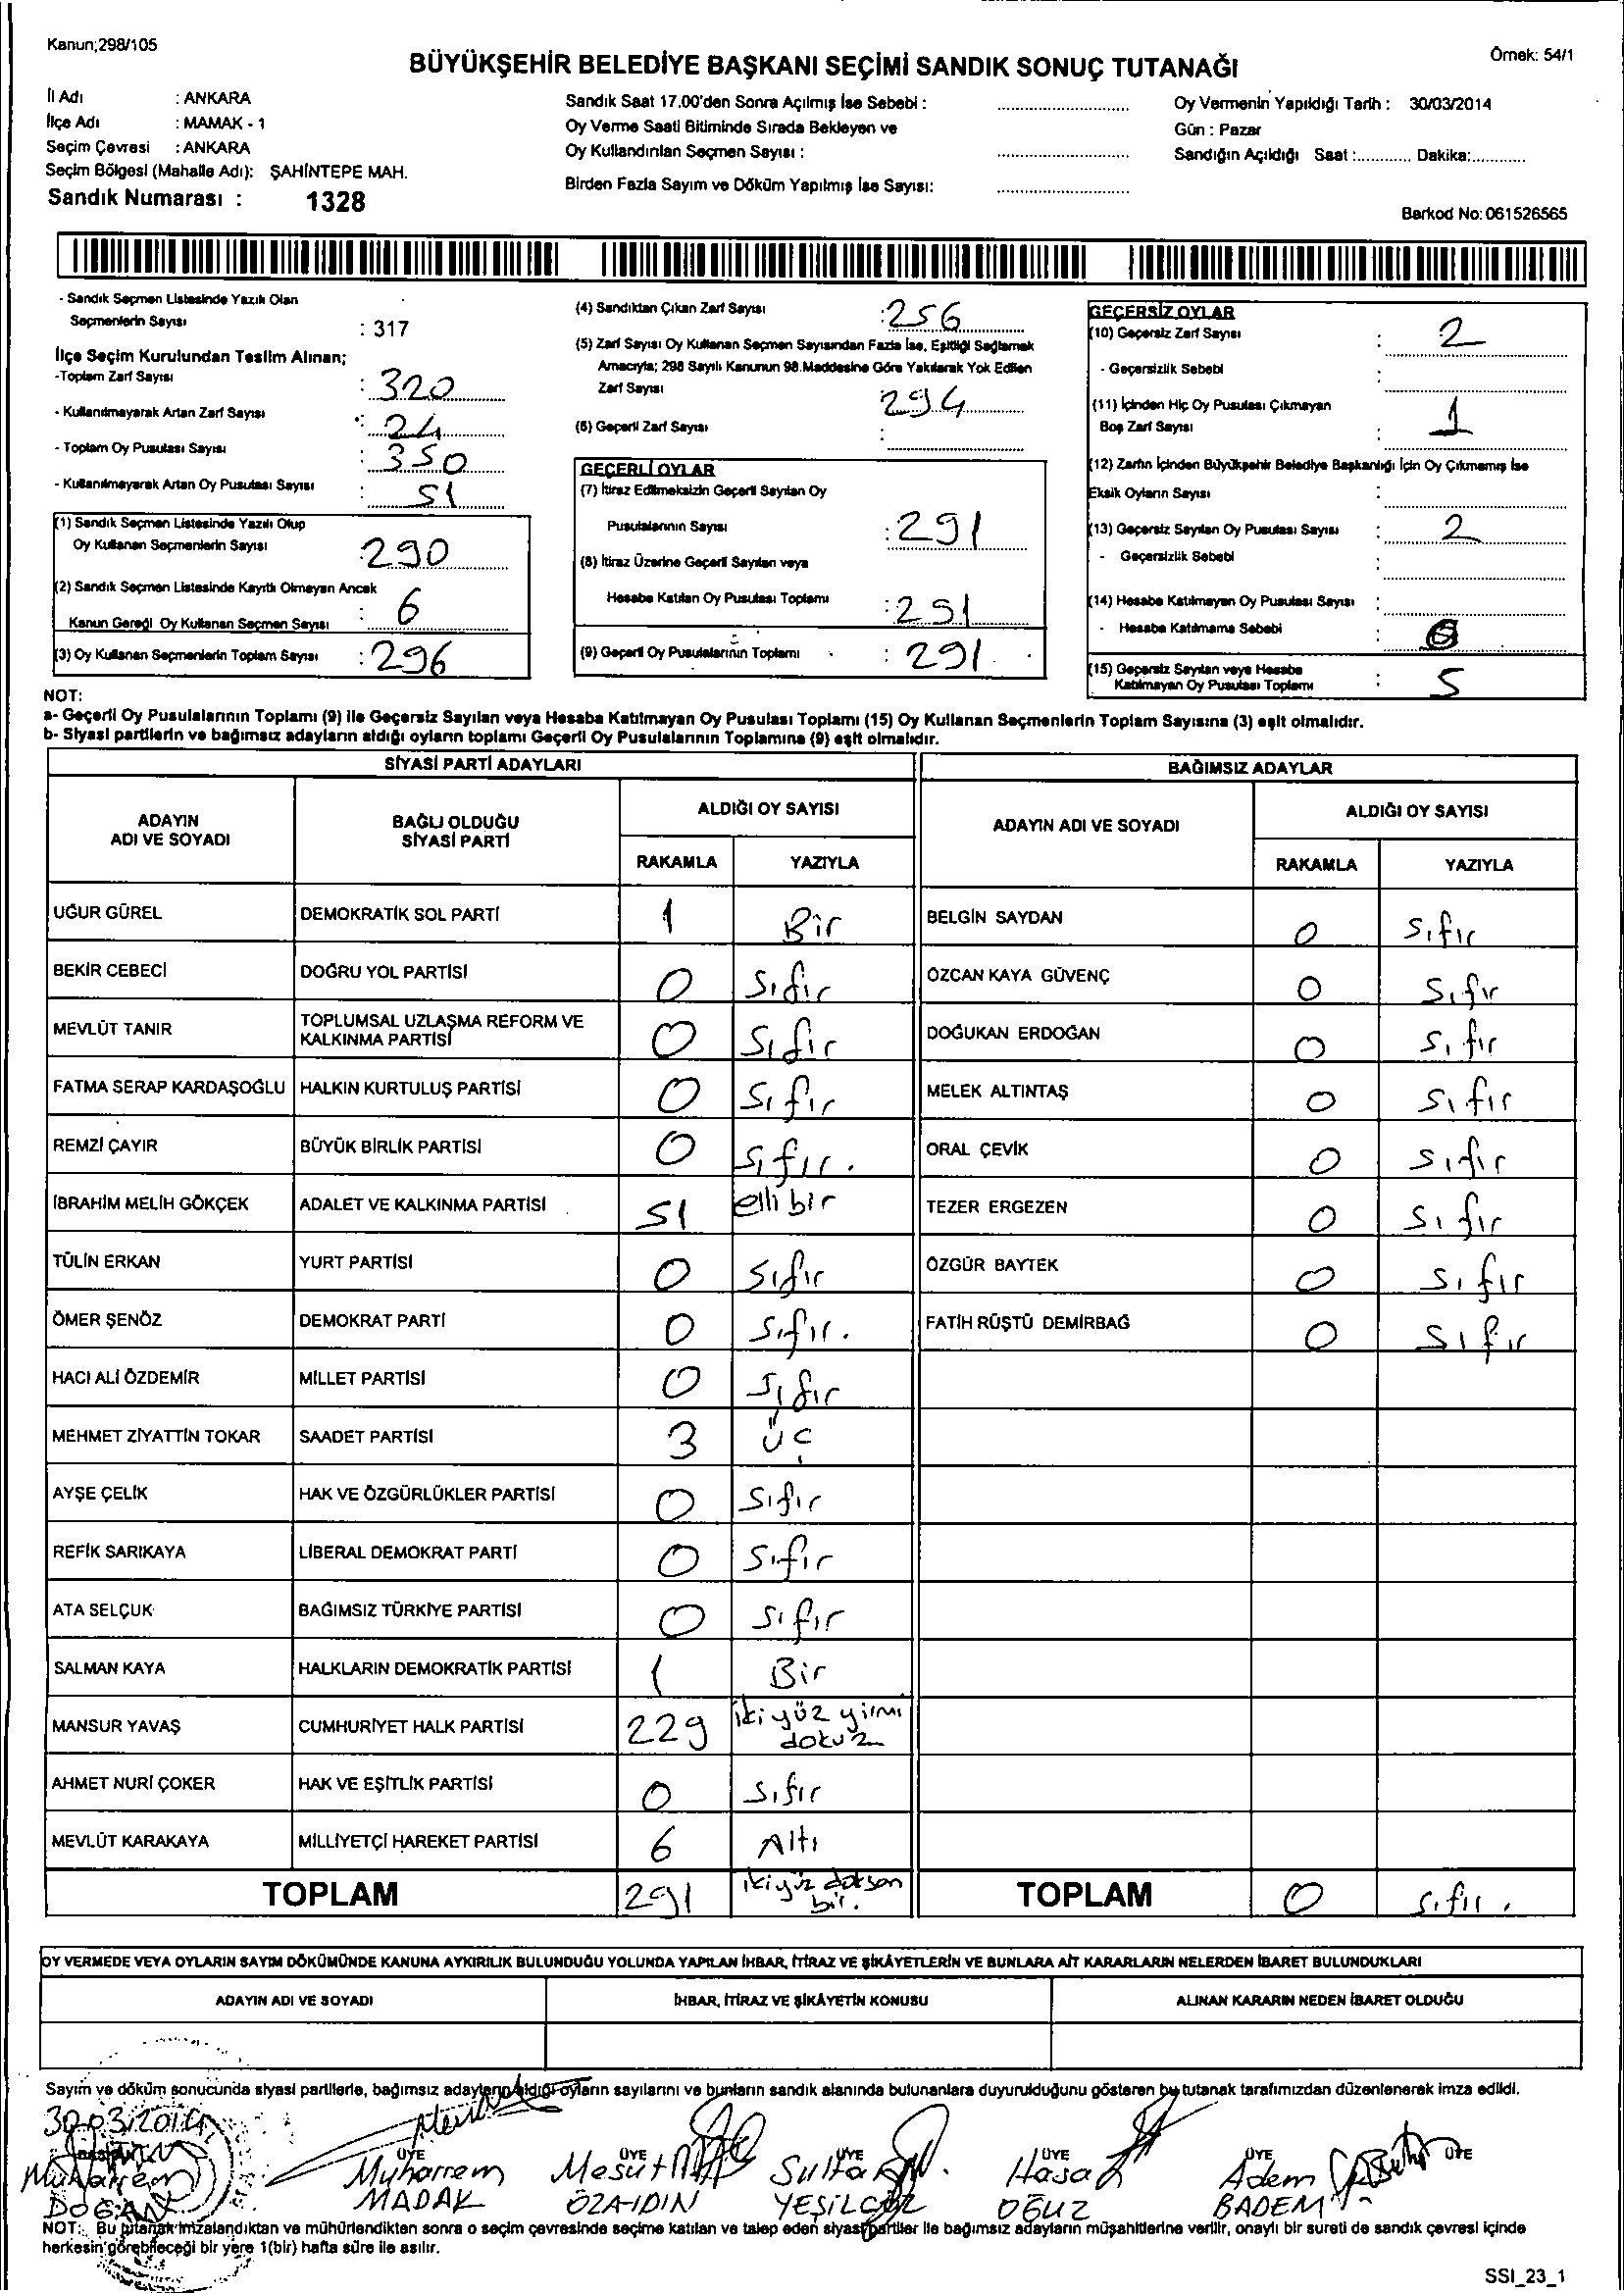 Kanun;298/105
Örnek: 54/1
BÜYÜKŞEHİR BELEDİYE BAŞKANI SEÇİMİ SANDIK SONUÇ TUTANAĞI
İl Adı : ANKARA
İlçe Adı : MAMAK - 1
Seçim Çevresi : ANKARA
Seçim Bölgesi (Mahalle Adı): ŞAHİNTEPE MAH.
Sandık Numarası : 1328
Sandık Saat 17.00'den Sonra Açılmış İse Sebebi : ..........
Oy Verme Saati Bitiminde Sırada Bekleyen ve
Oy Kullandırılan Seçmen Sayısı : ..........
Birden Fazla Sayım ve Döküm Yapılmış İse Sayısı: ..........
Oy Vermenin Yapıldığı Tarih : 30/03/2014
Gün : Pazar
Sandığın Açıldığı Saat :............ Dakika:............
Barkod No: 061526565
- Sandık Seçmen Listesinde Yazılı Olan
Seçmenlerin Sayısı : 317
İlçe Seçim Kurulundan Teslim Alınan;
-Toplam Zarf Sayısı : 320
- Kullanılmayarak Artan Zarf Sayısı : 24
- Toplam Oy Pusulası Sayısı : 350
- Kullanılmayarak Artan Oy Pusulası Sayısı : 51
(1) Sandık Seçmen Listesinde Yazılı Olup
Oy Kullanan Seçmenlerin Sayısı : 290
(2) Sandık Seçmen Listesinde Kayıtlı Olmayan Ancak
Kanun Gereği Oy Kullanan Seçmen Sayısı : 6
(3) Oy Kullanan Seçmenlerin Toplam Sayısı : 296
(4) Sandıktan Çıkan Zarf Sayısı : 256
(5) Zarf Sayısı Oy Kullanan Seçmen Sayısından Fazla İse, Eşitliği Sağlamak
Amacıyla; 298 Sayılı Kanunun 98.Maddesine Göre Yakılarak Yok Edilen
Zarf Sayısı
294
(6) Geçerli Zarf Sayısı :
GEÇERLİ OYLAR
(7) İtiraz Edilmeksizin Geçerli Sayılan Oy
Pusulalarının Sayısı : 291
(8) İtiraz Üzerine Geçerli Sayılan veya
Hesaba Katılan Oy Pusulası Toplamı : 291
(9) Geçerli Oy Pusulalarının Toplamı : 291
GEÇERSİZ OYLAR
(10) Geçersiz Zarf Sayısı : 2
- Geçersizlik Sebebi :
(11) İçinden Hiç Oy Pusulası Çıkmayan
Boş Zarf Sayısı : 1
(12) Zarfın İçinden Büyükşehir Belediye Başkanlığı İçin Oy Çıkmamış İse
Eksik Oyların Sayısı :
(13) Geçersiz Sayılan Oy Pusulası Sayısı : 2
- Geçersizlik Sebebi :
(14) Hesaba Katılmayan Oy Pusulası Sayısı :
- Hesaba Katılmama Sebebi :
(15) Geçersiz Sayılan veya Hesaba
Katılmayan Oy Pusulası Toplamı : 5
NOT:
a- Geçerli Oy Pusulalarının Toplamı (9) ile Geçersiz Sayılan veya Hesaba Katılmayan Oy Pusulası Toplamı (15) Oy Kullanan Seçmenlerin Toplam Sayısına (3) eşit olmalıdır.
b- Siyasi partilerin ve bağımsız adayların aldığı oyların toplamı Geçerli Oy Pusulalarının Toplamına (9) eşit olmalıdır.
SİYASİ PARTİ ADAYLARI
ADAYIN ADI VE SOYADI BAĞLI OLDUĞU SİYASİ PARTİ ALDIĞI OY SAYISI
RAKAMLA YAZIYLA
UĞUR GÜREL DEMOKRATİK SOL PARTİ 1 Bir
BEKİR CEBECİ DOĞRU YOL PARTİSİ 0 Sıfır
MEVLÜT TANIR TOPLUMSAL UZLAŞMA REFORM VE KALKINMA PARTİSİ 0 Sıfır
FATMA SERAP KARDAŞOĞLU HALKIN KURTULUŞ PARTİSİ 0 Sıfır
REMZİ ÇAYIR BÜYÜK BİRLİK PARTİSİ 0 Sıfır.
İBRAHİM MELİH GÖKÇEK ADALET VE KALKINMA PARTİSİ 51 elli bir
TÜLİN ERKAN YURT PARTİSİ 0 Sıfır
ÖMER ŞENÖZ DEMOKRAT PARTİ 0 Sıfır.
HACI ALİ ÖZDEMİR MİLLET PARTİSİ 0 Sıfır
MEHMET ZİYATTİN TOKAR SAADET PARTİSİ 3 üç
AYŞE ÇELİK HAK VE ÖZGÜRLÜKLER PARTİSİ 0 Sıfır
REFİK SARIKAYA LİBERAL DEMOKRAT PARTİ 0 Sıfır
ATA SELÇUK BAĞIMSIZ TÜRKİYE PARTİSİ 0 Sıfır
SALMAN KAYA HALKLARIN DEMOKRATİK PARTİSİ 1 Bir
MANSUR YAVAŞ CUMHURİYET HALK PARTİSİ 229 iki yüz yirmi dokuz
AHMET NURİ ÇOKER HAK VE EŞİTLİK PARTİSİ 0 Sıfır
MEVLÜT KARAKAYA MİLLİYETÇİ HAREKET PARTİSİ 6 Altı
TOPLAM 291 iki yüz doksan bir.
BAĞIMSIZ ADAYLAR
ADAYIN ADI VE SOYADI ALDIĞI OY SAYISI
RAKAMLA YAZIYLA
BELGİN SAYDAN 0 Sıfır
ÖZCAN KAYA GÜVENÇ 0 Sıfır
DOĞUKAN ERDOĞAN 0 Sıfır
MELEK ALTINTAŞ 0 Sıfır
ORAL ÇEVİK 0 Sıfır
TEZER ERGEZEN 0 Sıfır
ÖZGÜR BAYTEK 0 Sıfır
FATİH RÜŞTÜ DEMİRBAĞ 0 Sıfır
TOPLAM 0 Sıfır.
OY VERMEDE VEYA OYLARIN SAYIM DÖKÜMÜNDE KANUNA AYKIRILIK BULUNDUĞU YOLUNDA YAPILAN İHBAR, İTİRAZ VE ŞİKÂYETLERİN VE BUNLARA AİT KARARLARIN NELERDEN İBARET BULUNDUKLARI
ADAYIN ADI VE SOYADI İHBAR, İTİRAZ VE ŞİKÂYETİN KONUSU ALINAN KARARIN NEDEN İBARET OLDUĞU
Sayım ve döküm sonucunda siyasi partilerle, bağımsız adayların aldığı oyların sayılarını ve bunların sandık alanında bulunanlara duyurulduğunu gösteren bu tutanak tarafımızdan düzenlenerek imza edildi.
30.03.2014
ÜYE ÜYE ÜYE ÜYE ÜYE ÜYE
Muharrem Muharrem Mesut Sultan Hasan Adem
DOĞAN MADAK ÖZAYDIN YEŞİLGÖZ OĞUZ BADEM
NOT: Bu tutanak imzalandıktan ve mühürlendikten sonra o seçim çevresinde seçime katılan ve talep eden siyasi partiler ile bağımsız adayların müşahitlerine verilir, onaylı bir sureti de sandık çevresi içinde
herkesin görebileceği bir yere 1(bir) hafta süre ile asılır.
SSI_23_1